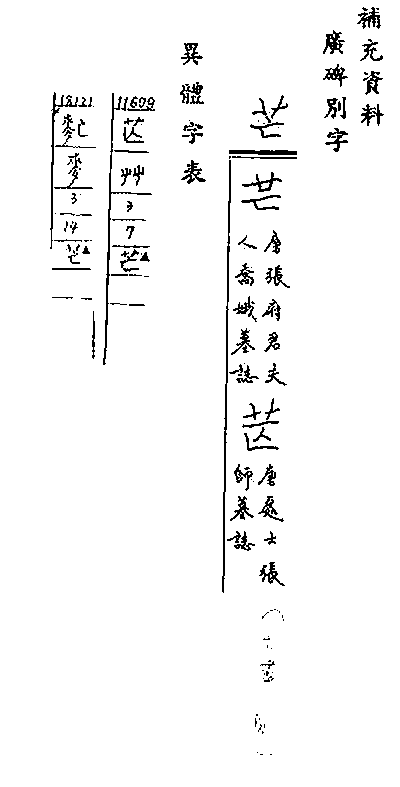 補充資料
廣碑別字
芒
芒
唐張府君夫
人喬娥墓誌
唐處士張
師墓誌
異體字表
11609
艸
3
7
芒▲
18121
麥
3
14
芒▲